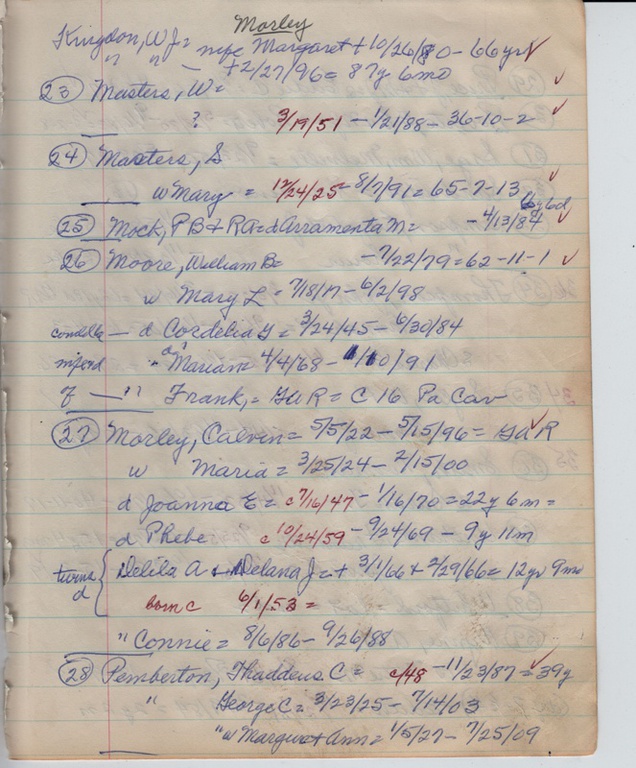 Morley
Kingdon, W J = wife Margaret + 10/26/80 - 66 yrs
" " - +2/27/96 = 87y 6mo
23 Masters, W =
? 3/19/51 - 1/21/88 - 36-10-2
24 Masters, S
w Mary = 12/24/25 - 8/7/91 = 65-7-13
25 Mock, P B + R A = d Arramenta M = - 4/13/84 6y 6d
26 Moore, William B = - 7/22/79 = 62-11-1
w Mary L = 7/18/17 - 6/2/98
d Cordelia G = 3/24/45 - 6/30/84
" Mariam 4/4/68 - 1/10/91
of - " Frank, = GAR = C 16 Pa Cav
27 Morley, Calvin = 5/5/22 - 5/15/96 = GAR
w Maria = 3/25/24 - 2/15/00
d Joanna E = c 7/16/47 - 1/16/70 = 22y 6m =
d Phebe c 10/24/59 - 9/24/69 - 9y 11m
twins d Delila A + Delana J = + 3/1/66 + 2/29/66 = 12yr 9mo
born c 6/1/53 =
" Connie = 8/6/86 - 9/26/88
28 Pemberton, Thaddeus C = c/48 - 11/23/87 = 39y
" George C = 3/23/25 - 7/14/03
" w Margaret Ann = 1/5/27 - 7/25/09